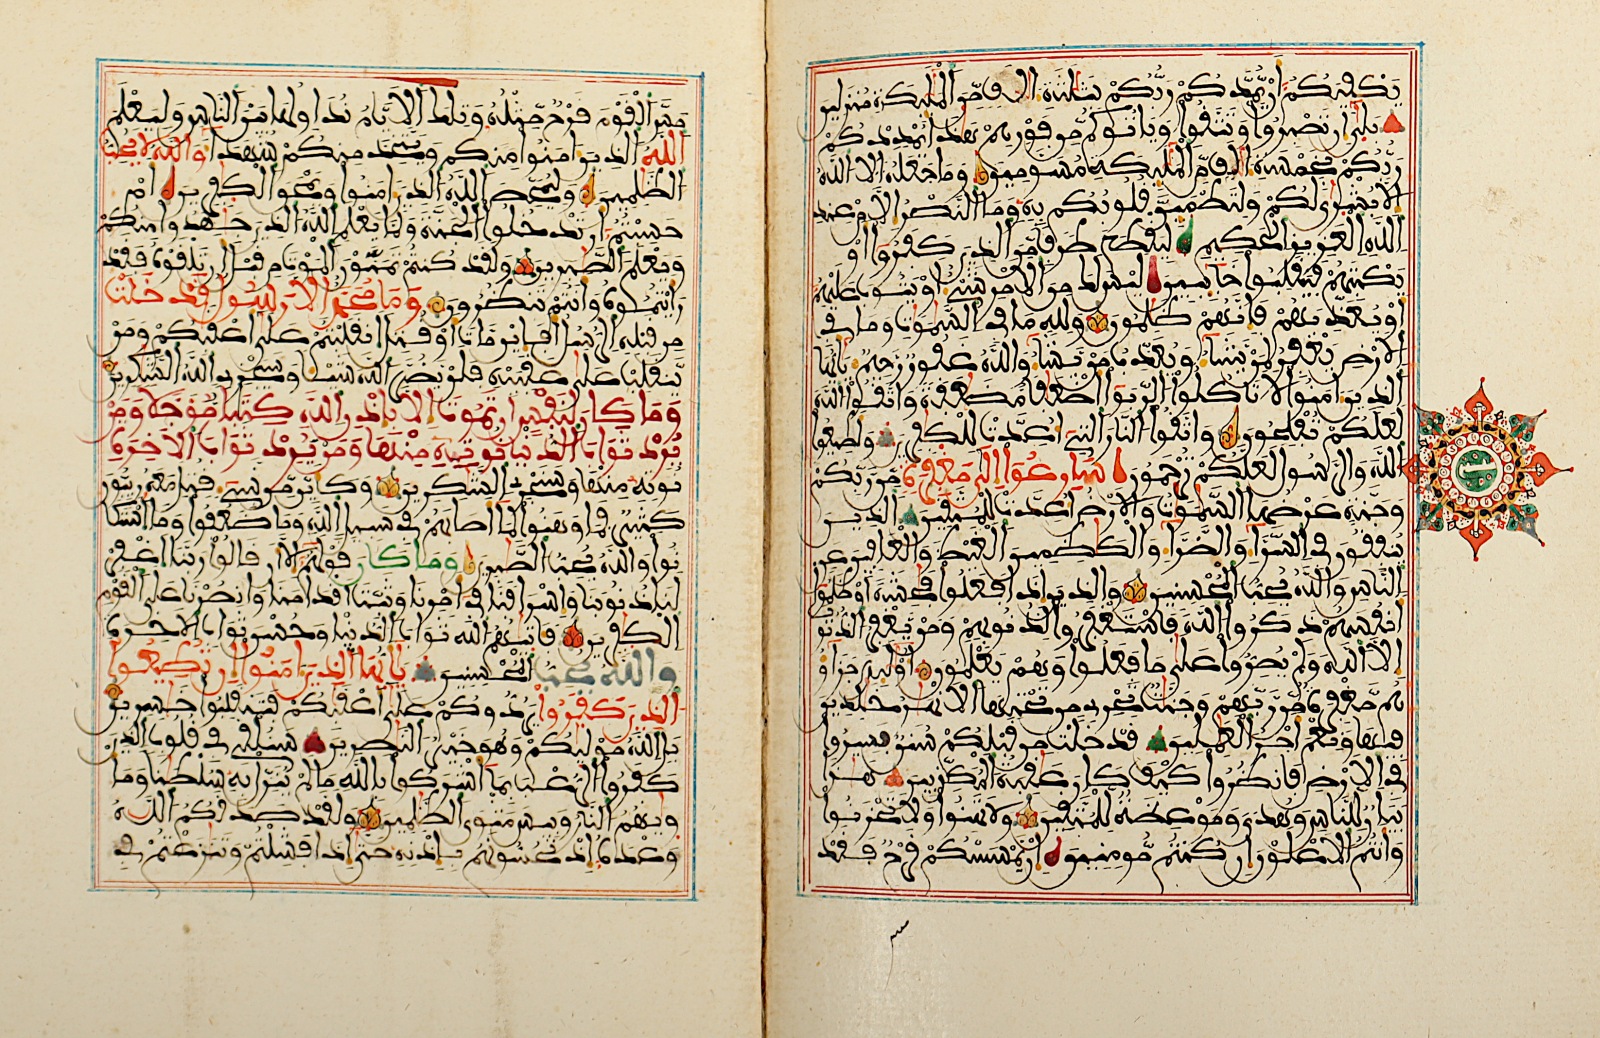 يكفيكم أن يمدكم ربكم بثلثة الاف من الملئكة منزلين
بلى ان تصبروا وتتقوا وياتوكم من فورهم هذا يمددكم
ربكم بخمسة الاف من الملئكة مسومين وما جعله الله
الا بشرى لكم ولتطمئن قلوبكم به وما النصر الا من عند
الله العزيز الحكيم ليقطع طرفا من الذين كفروا او
يكبتهم فينقلبوا خائبين ليس لك من الامر شيء او يتوب عليهم
او يعذبهم فانهم ظلمون ولله ما في السموت وما في
الارض يغفر لمن يشاء ويعذب من يشاء والله غفور رحيم يايها
الذين امنوا لا تاكلوا الربوا اضعفا مضعفة واتقوا الله
لعلكم تفلحون واتقوا النار التي اعدت للكفرين واطيعوا
الله والرسول لعلكم ترحمون سارعوا الى مغفرة من ربكم
وجنة عرضها السموت والارض اعدت للمتقين الذين
ينفقون في السراء والضراء والكظمين الغيظ والعافين عن
الناس والله يحب المحسنين والذين اذا فعلوا فحشة او ظلموا
انفسهم ذكروا الله فاستغفروا لذنوبهم ومن يغفر الذنوب
الا الله ولم يصروا على ما فعلوا وهم يعلمون اولئك جزاؤ
هم مغفرة من ربهم وجنت تجري من تحتها الانهر خلدين
فيها ونعم اجر العملين قد خلت من قبلكم سنن فسيروا
في الارض فانظروا كيف كان عقبة المكذبين هذا
بيان للناس وهدى وموعظة للمتقين ولا تهنوا ولا تحزنوا
وانتم الاعلون ان كنتم مومنين ان يمسسكم قرح فقد
مس
مس القوم قرح مثله وتلك الايام نداولها بين الناس وليعلم
الله الذين امنوا منكم ويتخذ منكم شهداء والله لا يحب
الظلمين وليمحص الله الذين امنوا ويمحق الكفرين ام
حسبتم ان تدخلوا الجنة ولما يعلم الله الذين جهدوا منكم
ويعلم الصبرين ولقد كنتم تمنون الموت من قبل ان تلقوه فقد
رايتموه وانتم تنظرون وما محمد الا رسول قد خلت
من قبله الرسل افاين مات او قتل انقلبتم على اعقبكم ومن
ينقلب على عقبيه فلن يضر الله شيئا وسيجزي الله الشكرين
وما كان لنفس ان تموت الا باذن الله كتبا موجلا ومن
يرد ثواب الدنيا نوته منها ومن يرد ثواب الاخرة
نوته منها وسنجزي الشكرين وكاين من نبي قتل معه ربيون
كثير فما وهنوا لما اصابهم في سبيل الله وما ضعفوا وما استكا
نوا والله يحب الصبرين وما كان قولهم الا ان قالوا ربنا اغفر
لنا ذنوبنا واسرافنا في امرنا وثبت اقدامنا وانصرنا على القوم
الكفرين فاتيهم الله ثواب الدنيا وحسن ثواب الاخرة
والله يحب المحسنين يايها الذين امنوا ان تطيعوا
الذين كفروا يردوكم على اعقبكم فتنقلبوا خسرين
بل الله موليكم وهو خير النصرين سنلقي في قلوب الذين
كفروا الرعب بما اشركوا بالله ما لم ينزل به سلطنا وما
ويهم النار وبيس مثوى الظلمين ولقد صدقكم الله
وعده اذ تحسونهم باذنه حتى اذا فشلتم وتنزعتم في